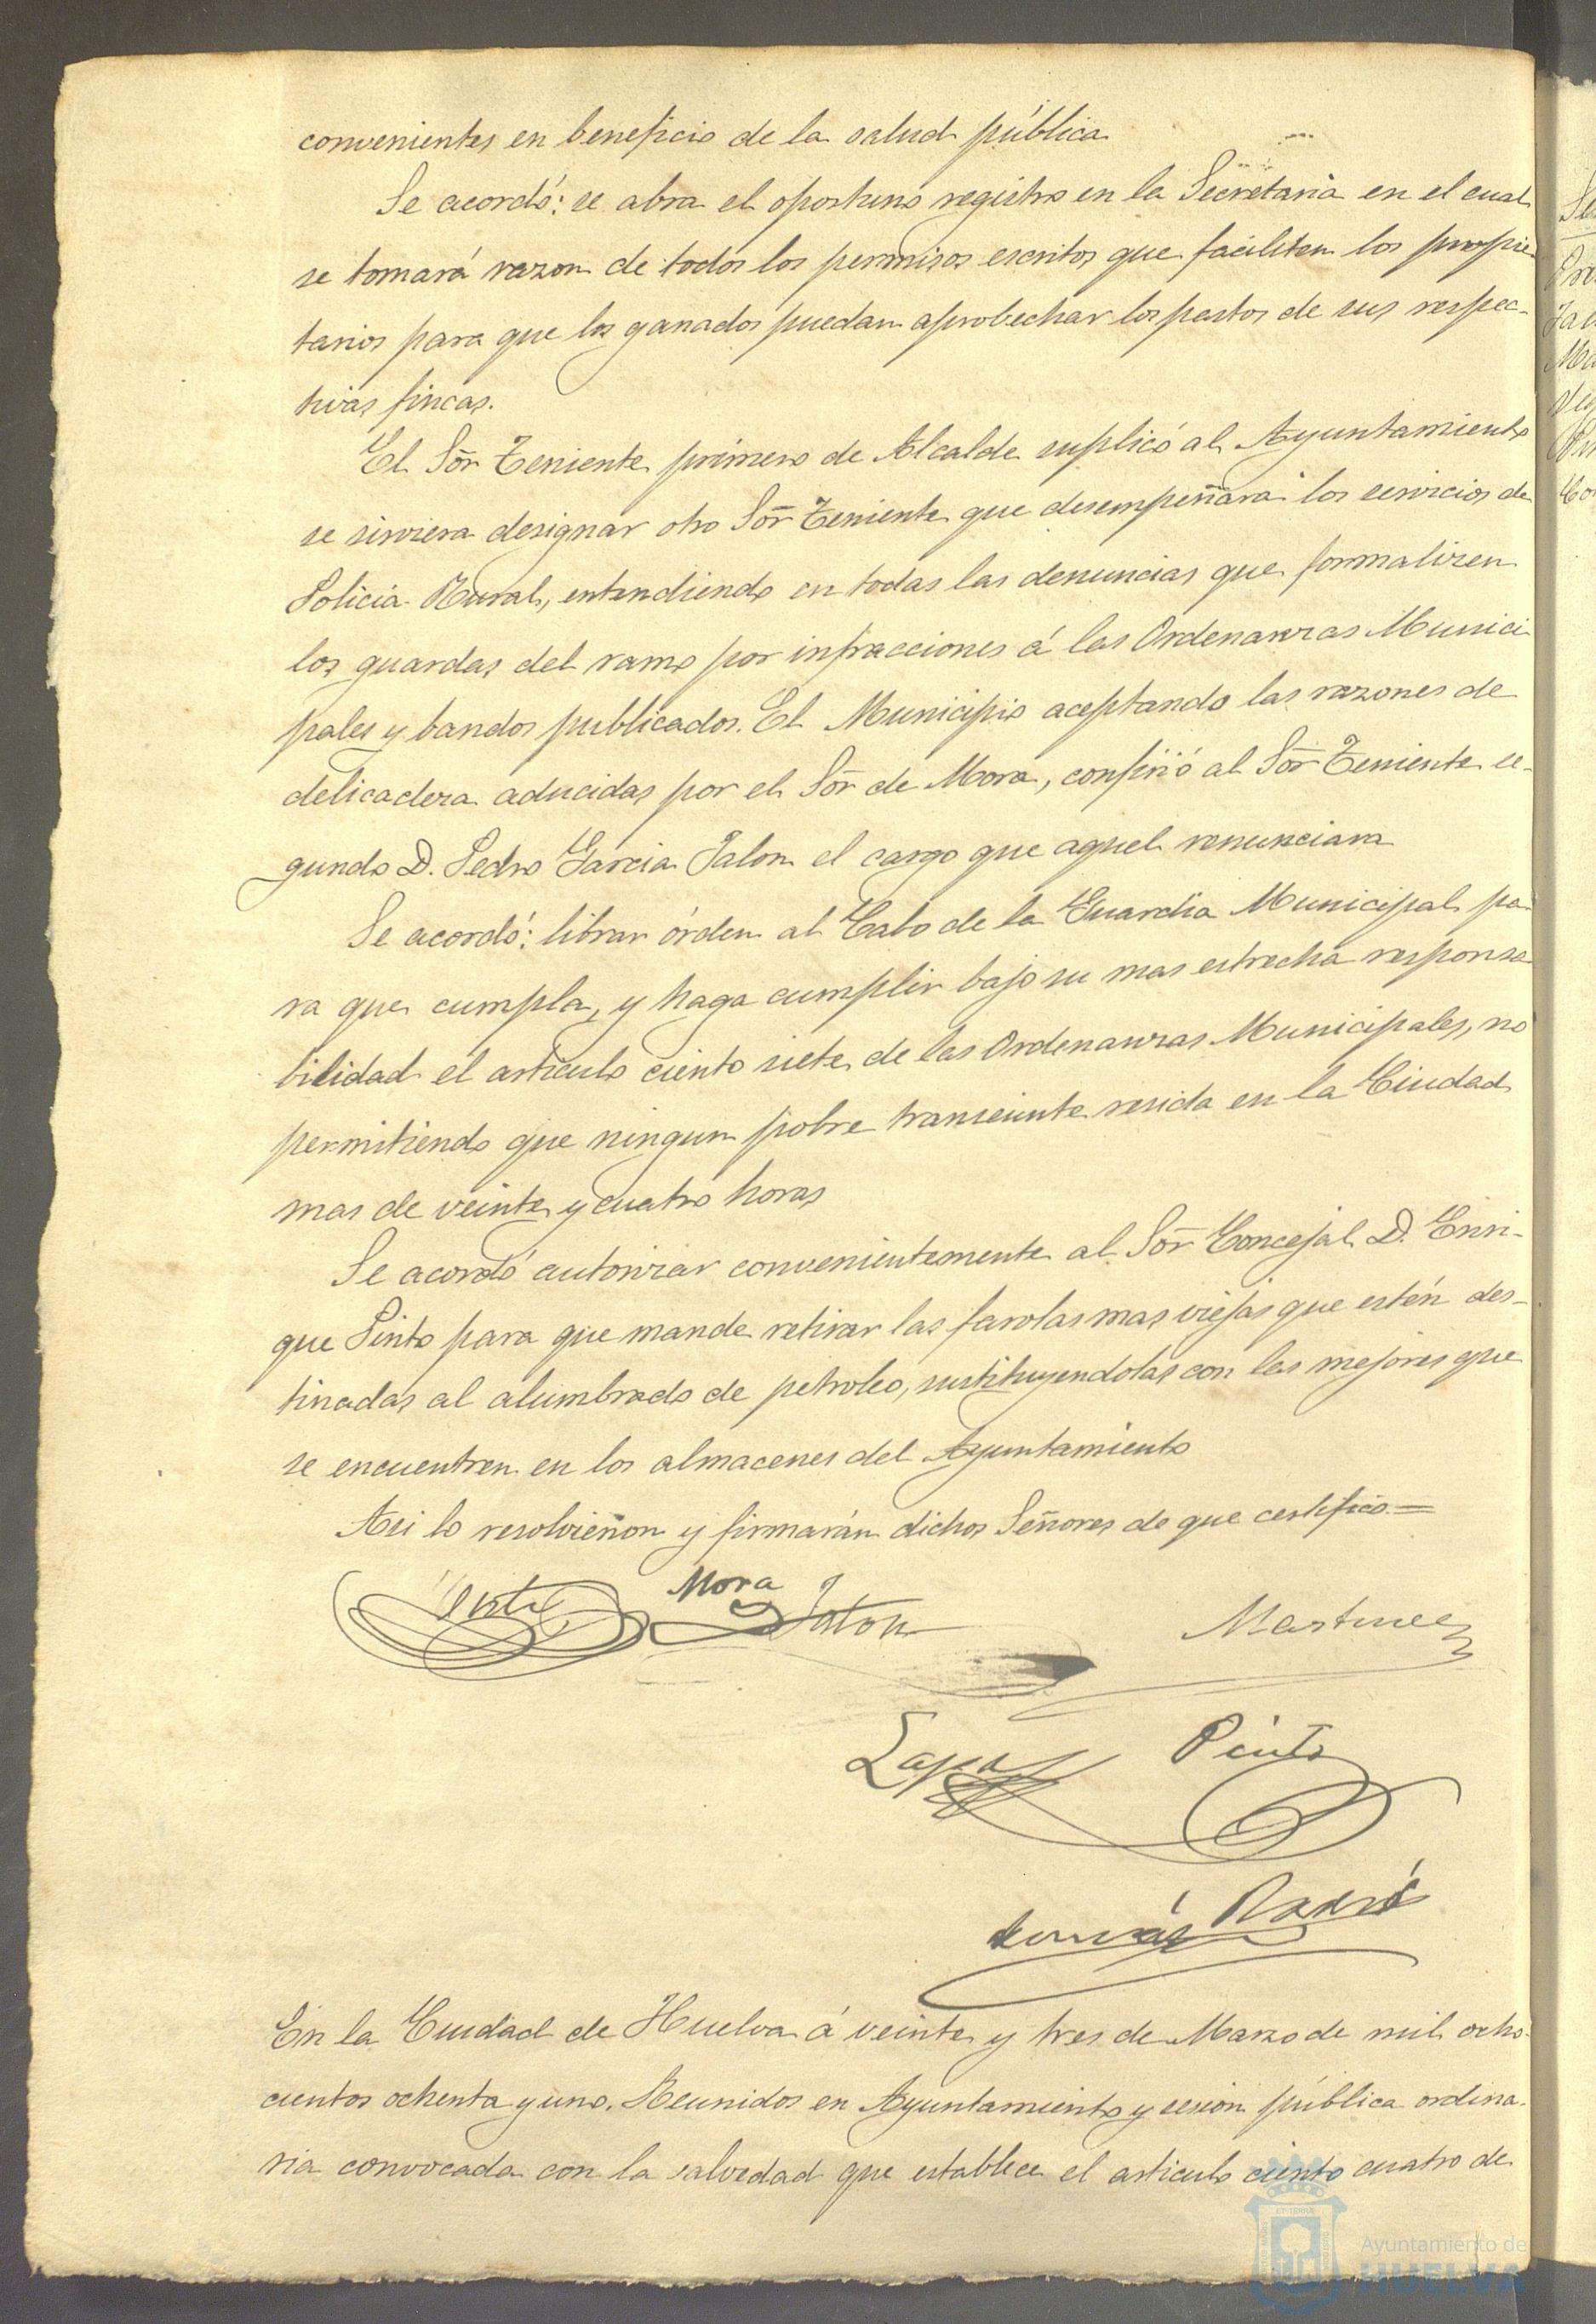 convenientes en beneficio de la salud pública
Se acordó: se abra el oportuno registro en la Secretaria en el cual
se tomará razon de todos los permisos escritos que faciliten los propie
tarios para que los ganados puedan aprobechar los pastos de sus respec-
tivas fincas.
El Sõr Teniente primero de Alcalde suplicó al Ayuntamiento
se sirviera designar otro Sõr Teniente que desempeñara los servicios de
Policia Rural, entendiendo en todas las denuncias que formalizen
los guardas del ramo por infracciones á las Ordenanzas Munici
pales y bandos publicados. El Municipio aceptando las razones de
delicadeza aducidas por el Sõr de Mora, confirió al Sõr Teniente se-
gundo D. Pedro Garcia Jalon el cargo que aquel renunciara
Se acordó: librar órden al Cabo de la Guardia Municipal pa-
ra que cumpla, y haga cumplir bajo su mas estrecha responsa
bilidad el articulo ciento siete de las Ordenanzas Municipales, no
permitiendo que ningun pobre transeunte resida en la Ciudad
mas de veinte y cuatro horas
Se acordó autorizar convenientemente al Sõr Concejal D. Enri-
que Pinto para que mande retirar las farolas mas viejas que estén des-
tinadas al alumbrado de petroleo, sustituyendolas con las mejores que
se encuentren en los almacenes del Ayuntamiento
Asi lo resolvieron y firmarán dichos Señores de que certifico.=
Mora
Jalon
Martinez
Pinto
En la Ciudad de Huelva á veinte y tres de Marzo de mil ocho-
cientos ochenta y uno. Reunidos en Ayuntamiento y sesion pública ordina-
ria convocada con la salvedad que establece el articulo ciento cuatro de
Ayuntamiento de
HUELVA